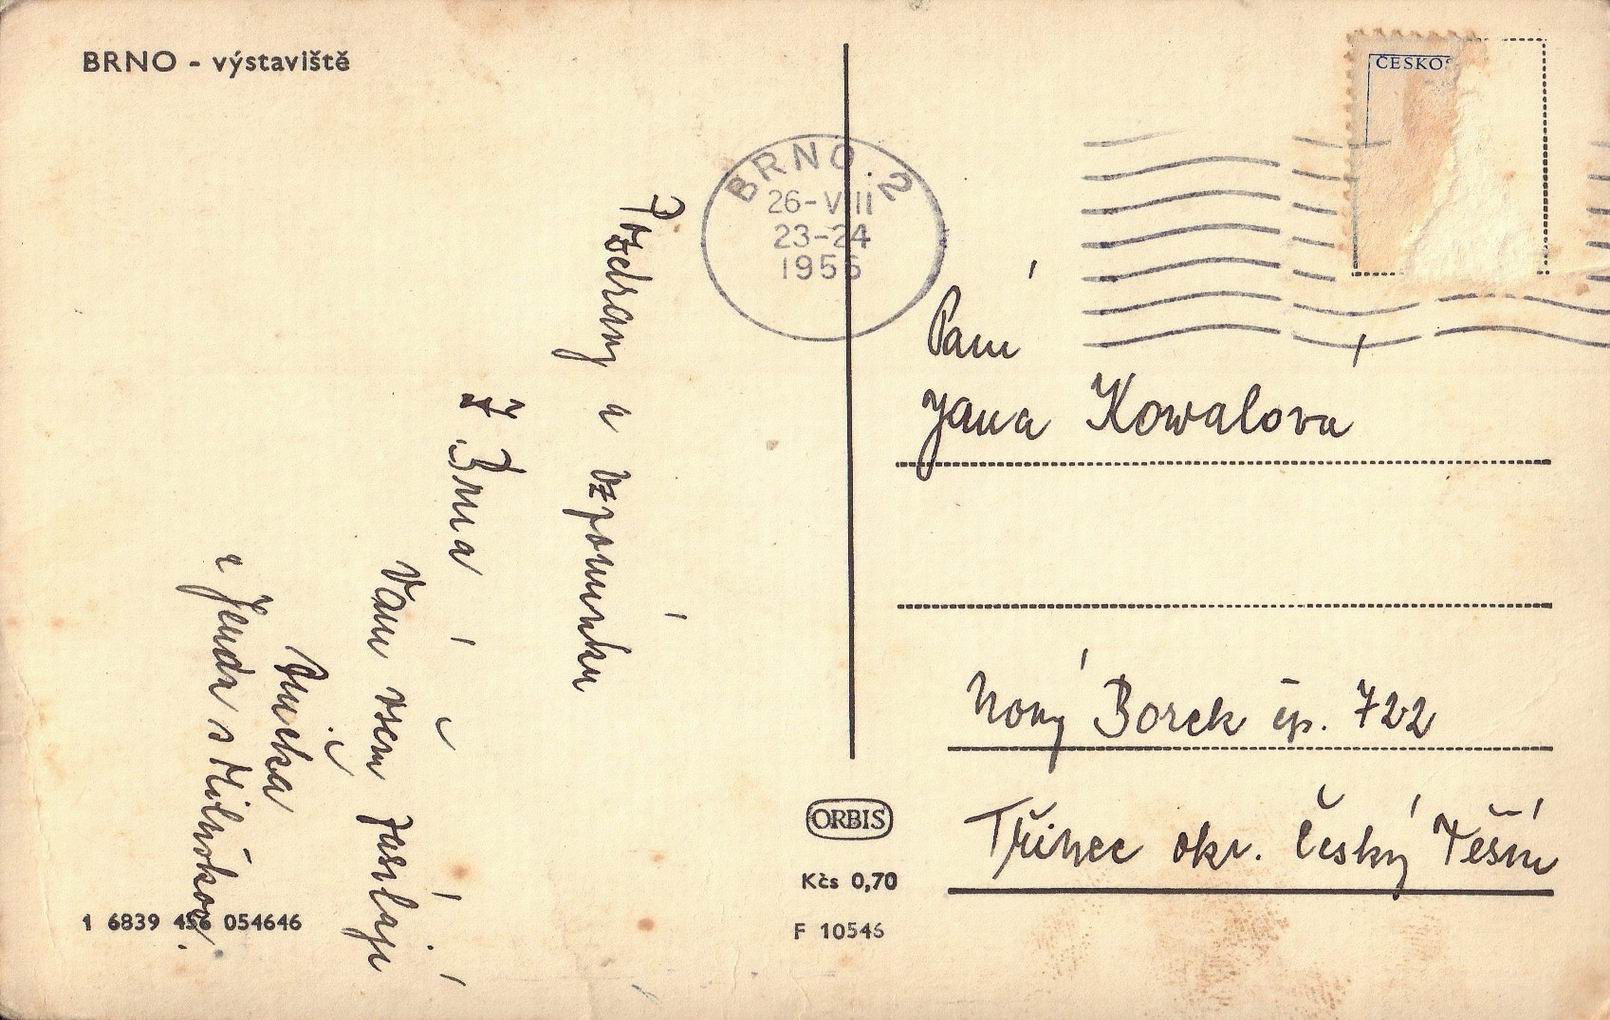 BRNO - výstaviště
ČESKOS
BRNO 2
26-VIII
23-24
1956
Pozdravy a vzpomínku
Z Brna
Vám všem zasílají
Anička
a Jenda s Miluškou.
Paní
Jana Kowalová
Nový Borek čp. 722
Třinec okr. Český Těšín
ORBIS
Kčs 0,70
F 10546
1 6839 456 054646